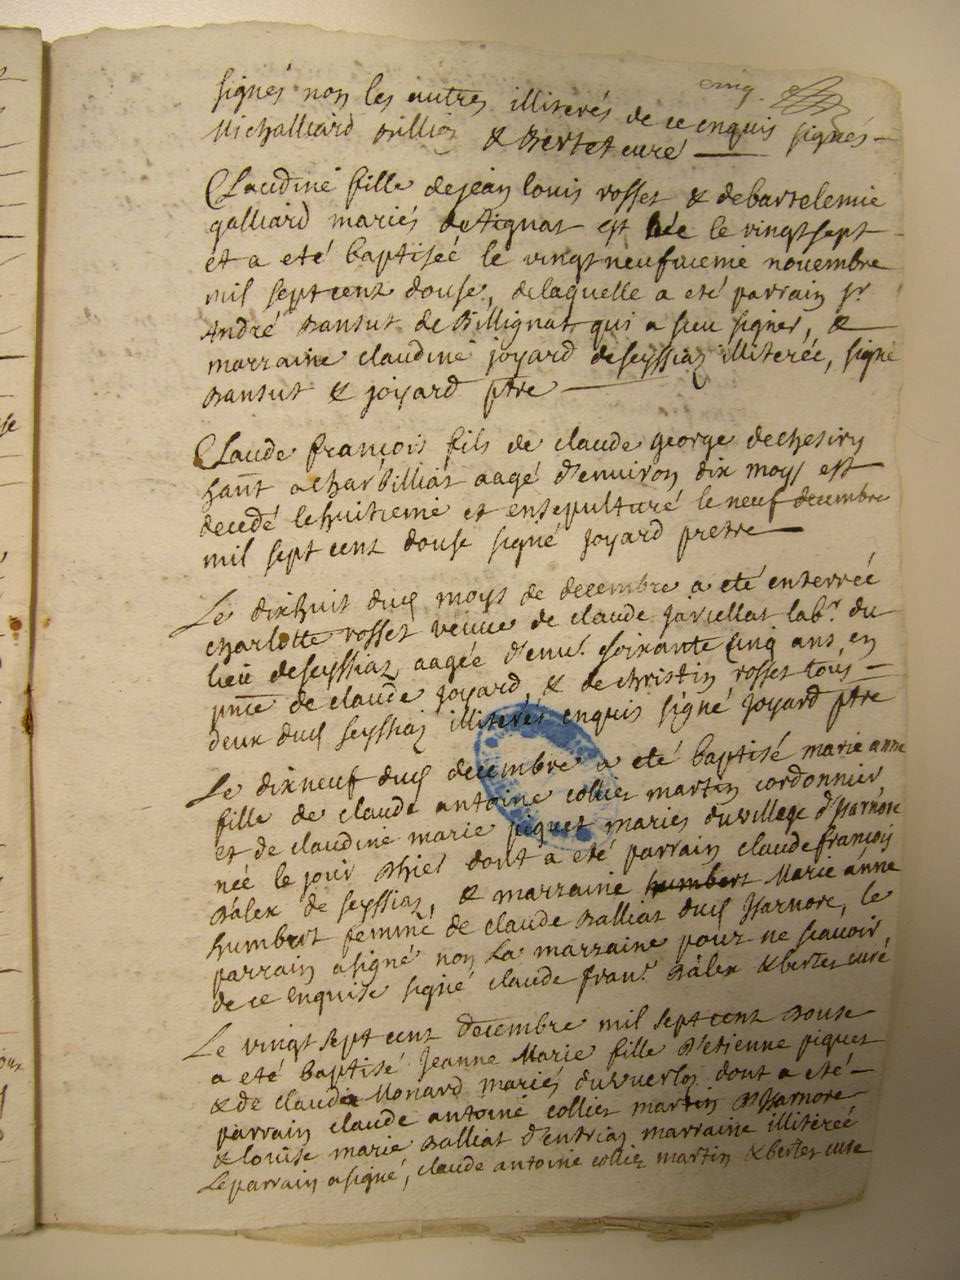 cinq.
signés non les autres illiterés de ce enquis signés
Michalliard Billion & Bertet curé
Claudine fille de jean louis rosset & de bartelemie
galliard mariés de tignat est née le vingt sept
et a eté baptiséé le vingt neufvieme novembre
mil sept cent douse, de laquelle a eté parrain sr
André Bansut de Billignat qui a sceu signer, &
marraine claudine joyard de seyssiaz illiterée, signé
Bansut & joyard ptre
Claude françois fils de claude george de chesiry
hant a charbilliat aagé d'environ dix moys est
decedé le huitieme et ensepulturé le neuf decembre
mil sept cent douse signé joyard pretre
Le dixhuit dud moys de decembre a eté enterréé
charlotte rosset veuve de claude labr. du
lieu de seyssiaz aagée d'envi. soixante cinq ans, en
pnce de claude joyard, & de christin rosset tous
deux dud seyssiaz illiterés enquis signé joyard ptre
Le dixneuf dud decembre a eté baptisé marie anne
fille de claude antoine colliez martin cordonnier,
et de claudine marie piquet mariés du village d'Isarnore
néé le jour d'hier dont a eté parrain claude françois
Bâlex de seyssiaz, & marraine humbert Marie anne
humbert femme de claude Balliat dud Isarnore, le
parrain a signé non la marraine pour ne scavoir,
de ce enquise signé claude fran. Bâlex & bertet curé
Le vingt sept cent decembre mil sept cent douse
a eté baptisé Jeanne Marie fille d'etienne piquet
& de claude Monard mariés du voerloz dont a eté
parrain claude antoine colliez martin d'Isarnore
& louise marie Balliat d'entriaz marraine illiteréé
Le parrain a signé, claude antoine colliez martin & bertet curé